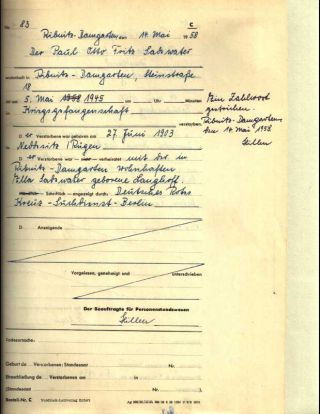 C
Nr. 83
Ribnitz-Damgarten, den 14. Mai 1958
Der Paul Otto Fritz Saßwater
wohnhaft in Ribnitz-Damgarten, Steinstraße
18
ist am 5. Mai 1958 1945 um Uhr Minuten
in Kriegsgefangenschaft
verstorben.
Ein Zahlwort
gestrichen.
Ribnitz-Damgarten
den 14. Mai 1958.
D er Verstorbene war geboren am 27. Juni 1903
in Rügen
D er Verstorbene war verheiratet mit der in
Ribnitz-Damgarten wohnhaften
Ella Saßwater geborene Langhoff.
Schriftlich angezeigt durch Deutsches Rotes
Kreuz-Suchdienst-Berlin
D Anzeigende
Vorgelesen, genehmigt und unterschrieben
Der Beauftragte für Personenstandswesen
Todesursache:
Geburt de Verstorbenen: Standesamt
Nr.
Eheschließung de Verstorbenen am in
(Standesamt Nr. )
Bestell-Nr. C